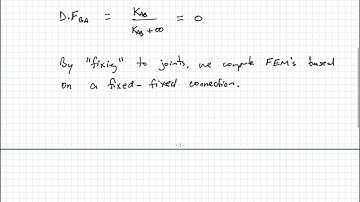 D.F_BA = K_AB / (K_AB + ∞) = 0
By "fixing" to joints, we compute FEM's based
on a fixed-fixed connection.
- 1 -